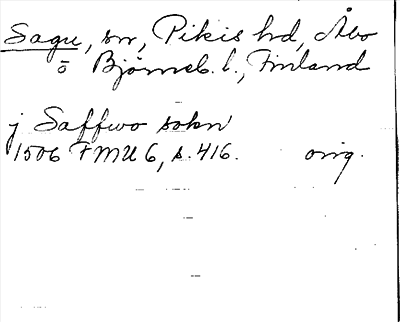 Sagu, sn, Pikis hd, Åbo
o Björneb. l., Finland
j Saffwo sokn
1506 FMU 6, s. 416. orig.